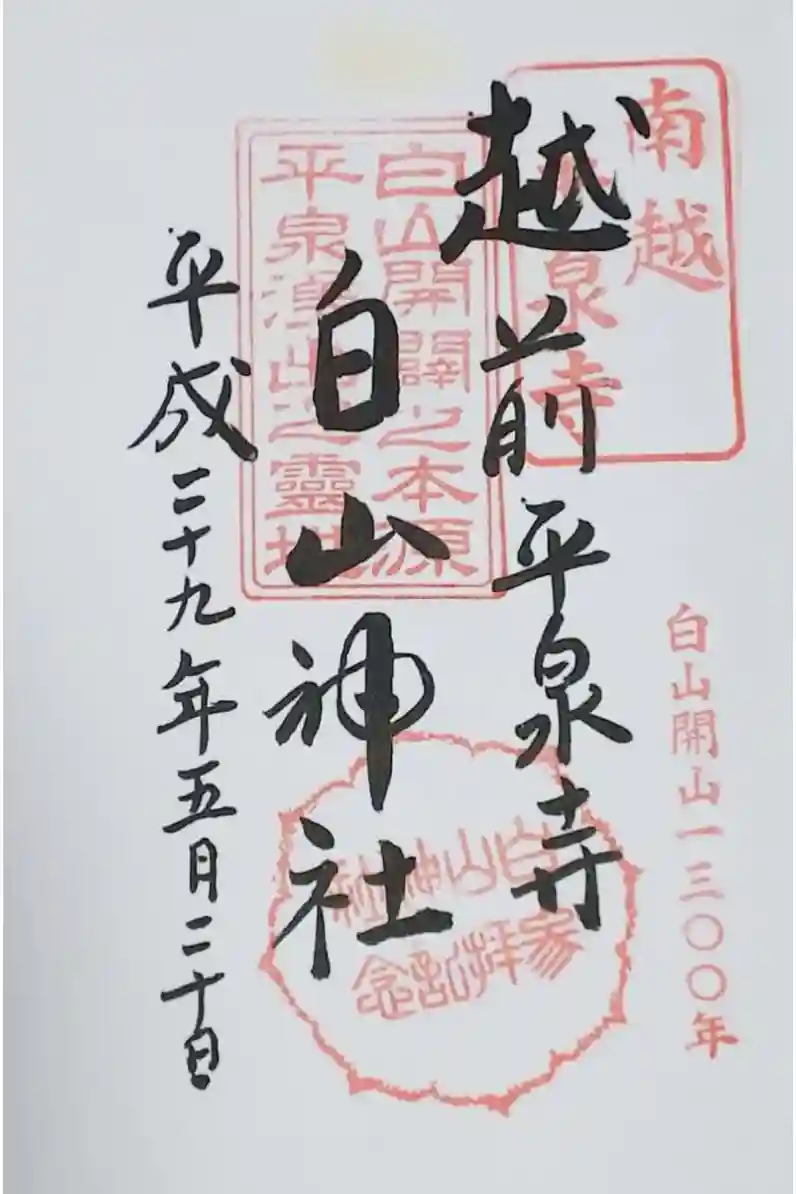 南越
平泉寺
白山開闢之本源
平泉湧出之靈地
越前平泉寺
白山神社
平成二十九年五月二十日
白山開山一三〇〇年
白山神社
参拝記念